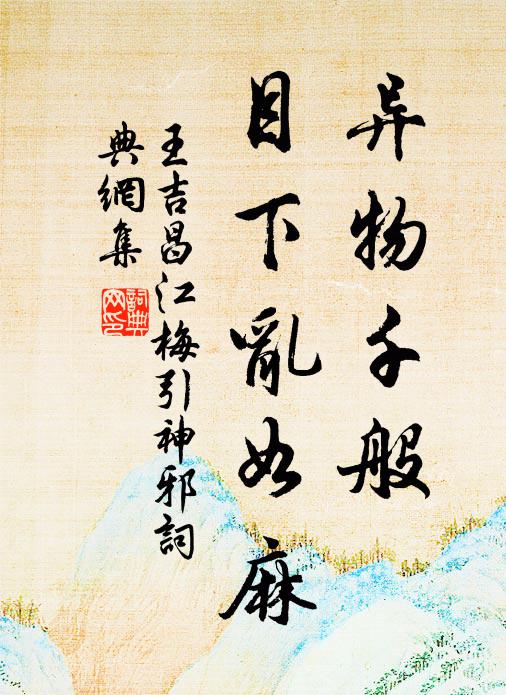 异物千般
目下亂如麻
王吉昌江梅引神邪詞
典網集
詞典
网印